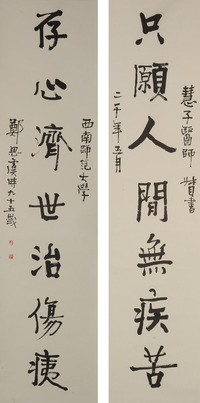 慧子醫師 督書
只願人間無疾苦
二千年五月
西南師范大學
存心濟世治傷痍
鄭思虞時九十五歲